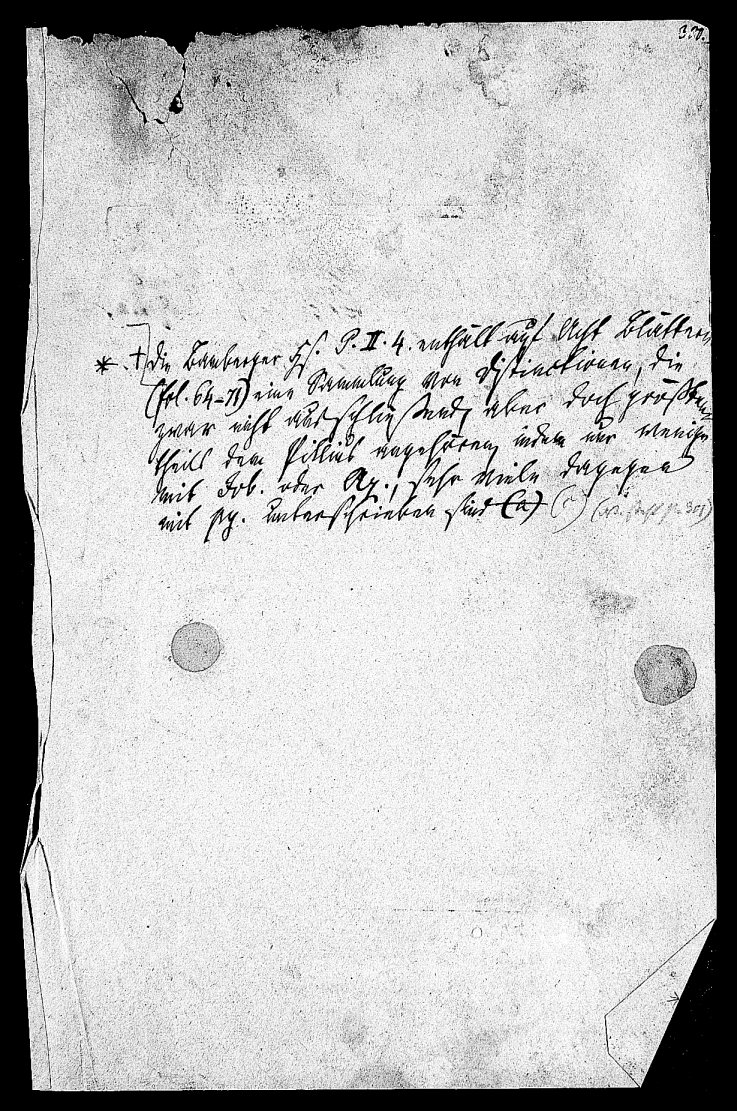 320.
* . † Die Bamberger Hs. P. II. 4. enthält auf Acht Blättern
(fol. 64–71) eine Sammlung von Distinctionen, die
zwar nicht ausschließend, aber doch größten
theils dem Pillius angehören, indem nur wenige
mit Job. oder Az., sehr viele dagegen
mit py. unterschrieben sind (a) (